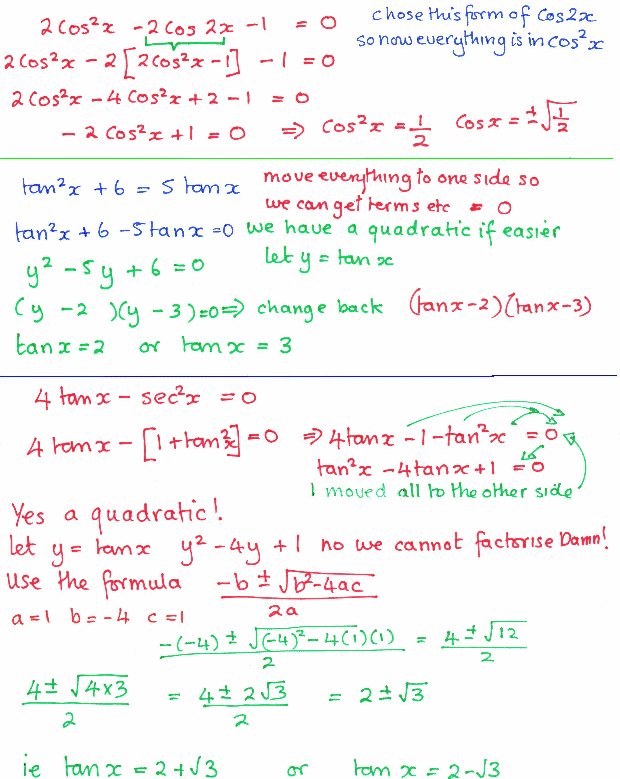 2cos²x - 2cos 2x - 1 = 0
chose this form of cos2x
so now everything is in cos²x
2cos²x - 2[2cos²x - 1] - 1 = 0
2cos²x - 4cos²x + 2 - 1 = 0
- 2cos²x + 1 = 0 ⇒ cos²x = 1/2 cosx = ±√(1/2)
tan²x + 6 = 5 tanx
move everything to one side so
we can get terms etc = 0
tan²x + 6 - 5tanx = 0
we have a quadratic if easier
let y = tanx
y² - 5y + 6 = 0
(y - 2 )(y - 3) = 0 ⇒ change back (tanx-2)(tanx-3)
tanx = 2 or tanx = 3
4 tanx - sec²x = 0
4 tanx - [1 + tan²x] = 0 ⇒ 4tanx - 1 - tan²x = 0
tan²x - 4tanx + 1 = 0
I moved all to the other side
Yes a quadratic!
let y = tanx y² - 4y + 1 no we cannot factorise Damn!
Use the formula (-b ± √(b²-4ac))/2a
a=1 b=-4 c=1
(-(-4) ± √((-4)² - 4(1)(1)))/2 = (4 ± √12)/2
(4 ± √(4x3))/2 = (4 ± 2√3)/2 = 2 ± √3
ie tanx = 2+√3 or tanx = 2-√3